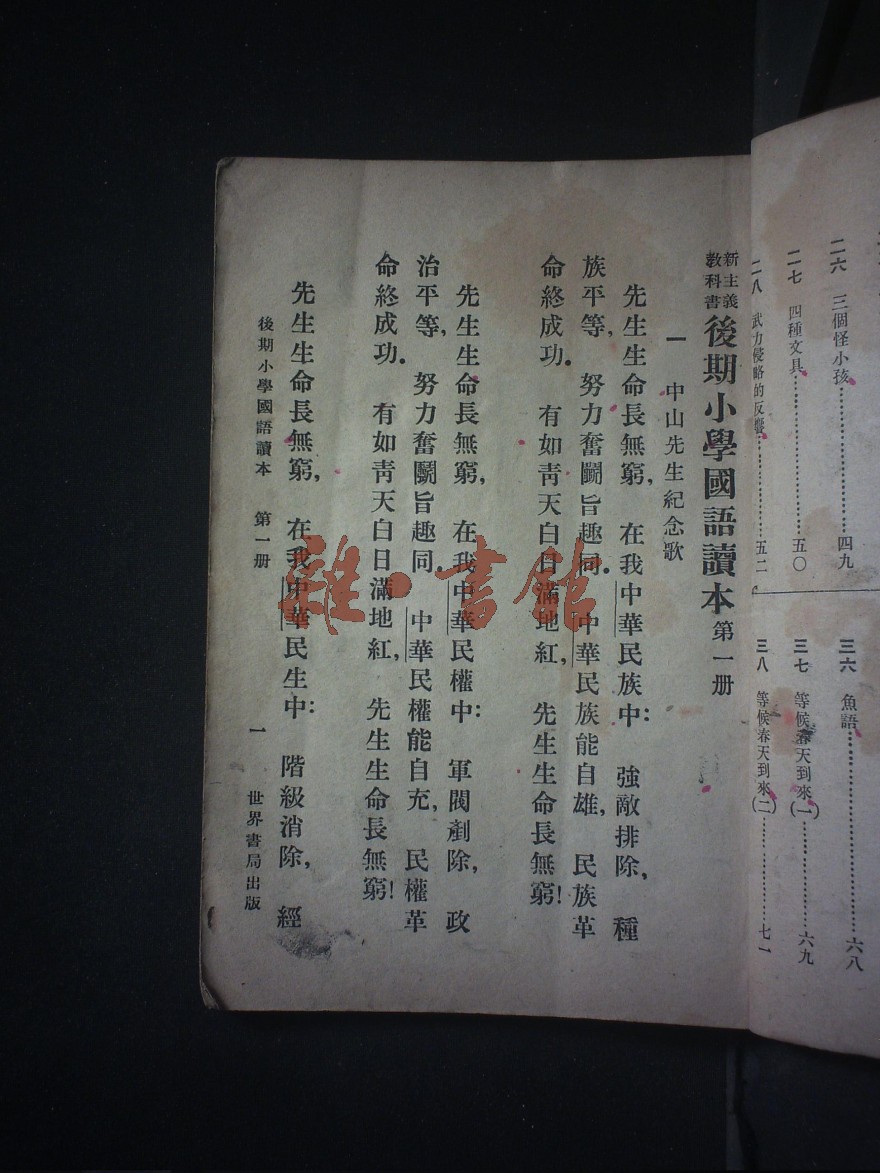 二六 三個怪小孩……………四九
二七 四種文具……………五〇
二八 武力侵略的反響……………五二
三六 魚語……………六八
三七 等候春天到來(一)……………六九
三八 等候春天到來(二)……………七一
新主義
教科書
後期小學國語讀本 第一册
一 中山先生紀念歌
先生生命長無窮, 在我中華民族中: 強敵排除, 種
族平等, 努力奮鬭旨趣同。 中華民族能自雄, 民族革
命終成功。 有如靑天白日滿地紅, 先生生命長無窮!
先生生命長無窮, 在我中華民權中: 軍閥剷除, 政
治平等, 努力奮鬭旨趣同。 中華民權能自充, 民權革
命終成功。 有如靑天白日滿地紅, 先生生命長無窮!
先生生命長無窮, 在我中華民生中: 階級消除, 經
後期小學國語讀本 第一册 一 世界書局出版
雜·書館